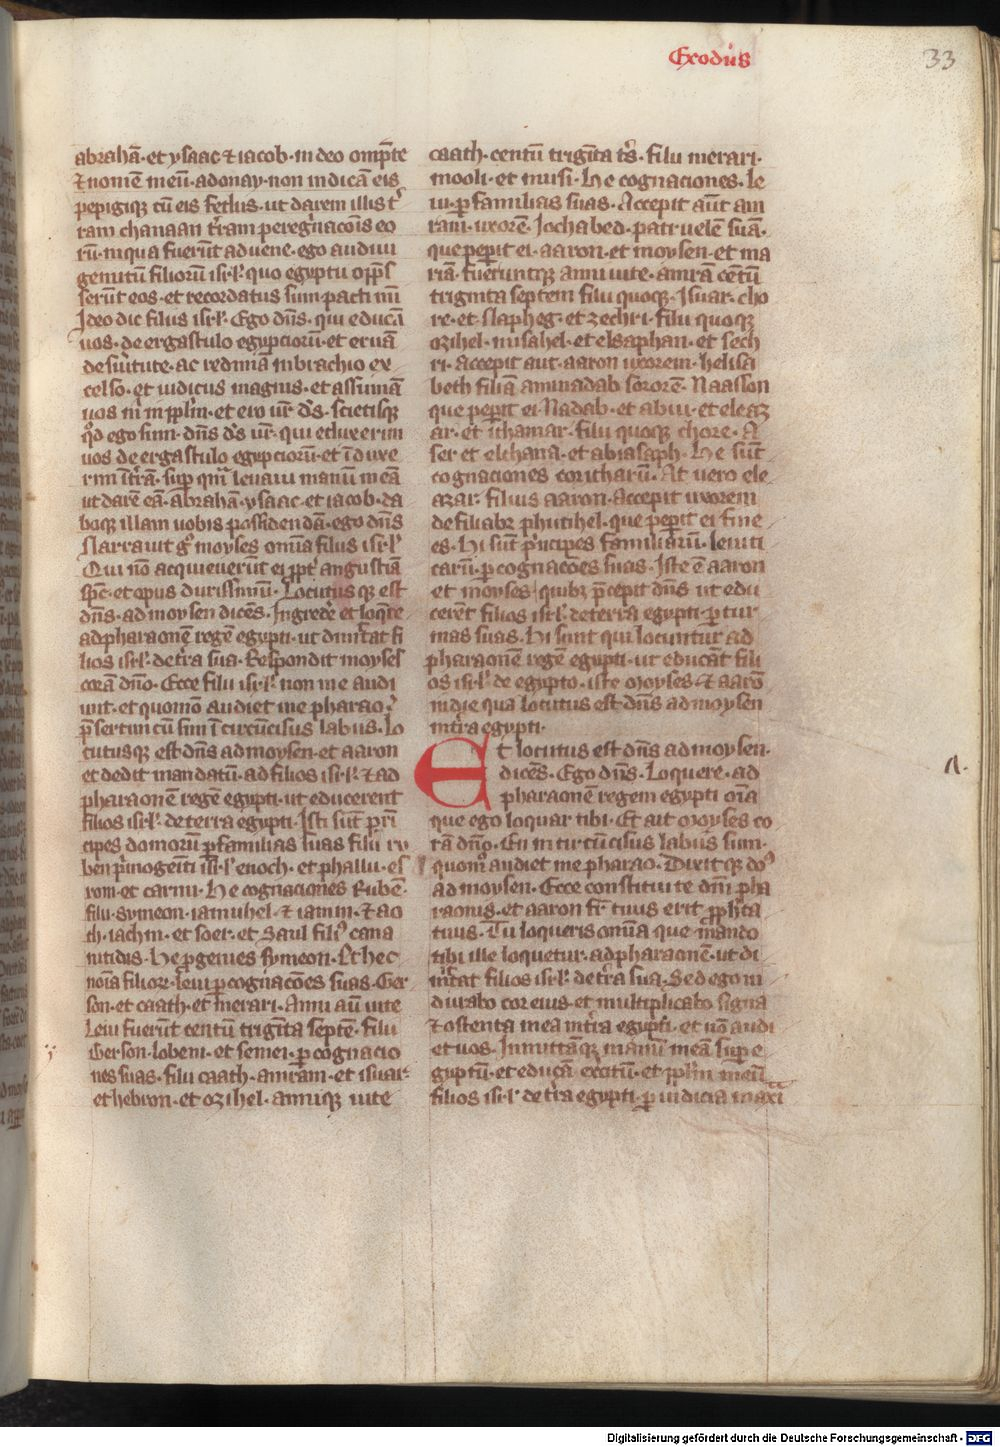 Exodus
33
abrahā · et ysaac ⁊ iacob · in deo omp̄te
⁊ nomē meū · adonay · non indicāeis
pepigiqꝫ cū eis fedus · ut darem illis t̄
ram chanaan t̄ram peregnacōis eo
rū · in qua fuerūt aduene · ego audiui
gemitū filiorū isrl̓ · quo egyptii opp̄s
serūt eos · et recordatus sum pacti mī
Ideo dic filiis isrl̓ · Ego dn̄s · qui educā
uos · de ergastulo egypciorū · et eruā
de suitute · ac redimā in brachio ex
celso · et iudiciis magnis · et assumā
uos m̄ in pplm̄ · et ero ur̄ ds̄ · scietisqꝫ
qd̓ ego sum · dn̄s ds̄ ur̄ · qui eduxerim
uos de ergastulo egypciorū · et īduxe
rim ī t̄rā · sup qm̄ leuaui manū meā
ut darē eā · abrahā · ysaac · et iacob · da
boqꝫ illam uobis possidendā · ego dn̄s
Narrauit g̓ moyses omīa filiis isrl̓
Qui nō acquieuerūt ei ppt̓ angustiā
spc̄ · et opus durissimū · Locutus qꝫ est
dn̄s · ad moysen dicēs · Ingredē et loqre
ad pharaonē regē egypti · ut dimittat fi
lios isrl̓ · de t̄ra sua · Respondit moyses
corā dn̄o · Ecce filii isrl̓ non me audi
unt · et quomō audiet me pharao ·
p̄sertim cū sim ī circūcisus labiis · Lo
cutusqꝫ est dn̄s ad moysen · et aaron
et dedit mandatū · ad filios isrl̓ · ⁊ ad
pharaonē regē egypti · ut educerent
filios isrl̓ · de terra egypti · Isti sūt pri
cipes domorū p familias suas filii ru
ben p̓mogeīti isrl̓ enoch · et phallu · es
rom · et carmi · He cognaciones Rubē ·
filii symeon · iamuhel · ⁊ iamin · ⁊ ao
th · iachin · et soer · et Saul fili⁹ cana
nitidis · He p̄genies symeon · Et hec
noīa filiorꝫ · leui p cognacōes suas · Ger
son · et caath · et merari · Anni aū uite
Leui fuerūt centū trigīta septē · filii
Gerson · lobeni · et semei · p cognacio
nes suas · filii caath · amram · et isuar ·
et hebron · et ozihel · anniqꝫ uite
caath · centū trigīta ts̄ · filii merari ·
mooli · et musi · He cognaciones · le
ui · p familias suas · Accepit aūt am
ram · uxorē · Jochabed · patruelē suā ·
que pepit ei · aaron · et moysen · et ma
riā · fueruntqꝫ anni uite · amrā cētū
triginta septem filii quoqꝫ · Isuar · cho
re · et Napheg · et zechri · filii quoqꝫ
ozihel · misahel · et elsaphan · et sech
ri · accepit aut · aaron uxorem · helisa
beth filiā aminadab sororē · Naasson
que pepit ei · Nadab · et abiu · et eleaz
ar · et ithamar · filii quoqꝫ chore · A
ser et elchana · et abiasaph · He sūt
cognaciones coritharū · At uero ele
azar · filius aaron · accepit uxorem
de filiabꝫ phutihel · que pepit ei fine
es · Hi sūt p̓ncipes familiarū · leuiti
carū · p cognacōes suas · Iste ē aaron
et moyses · quibꝫ p̄cepit dn̄s ut edu
cerēt filios isrl̓ · de terra egypti · p tur
mas suas · Hi sunt qui locuntur ad
pharaonē regē egypti · ut educāt fili
os isrl̓ · de egypto · iste moyses · ⁊ aarō
in die qua locutus est dn̄s ad moysen
in t̄ra egypti ·
Et locutus est dn̄s ad moysen ·
dicēs · Ego dn̄s · Loquere · ad
pharaonē regem egypti oīa
que ego loquar tibi · Et ait moyses co
rā dn̄o · En incircūcisus labiis sum ·
quom̄o audiet me pharao · Dixitqꝫ do⁹
ad moysen · Ecce constitui te dm̄ pha
raonis · et aaron fr̄ tuus erit pp̄heta
tuus · Tu loqueris omīa que mando
tibi ille loquetur · ad pharaonē · ut di
mittat filios isrl̓ · de t̄ra sua · Sed ego in
durabo cor eius · et multiplicabo signa
⁊ ostenta mea in t̄ra egypti · et nō audi
et uos · Inmittāqꝫ manū meā sup e
gyptū · et educā exc̄itū · et pplm̄ meū
filios isrl̓ de t̄ra egypti · p iudicia maxi
Digitalisierung gefördert durch die Deutsche Forschungsgemeinschaft - DFG